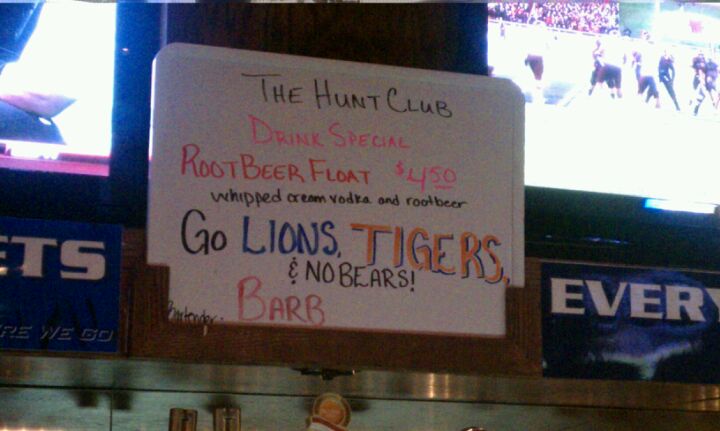 THE HUNT CLUB
DRINK SPECIAL
ROOTBEER FLOAT $4.50
whipped cream vodka and rootbeer
Go LIONS, TIGERS,
& NO BEARS!
Bartender: BARB
ETS
RE WE GO
EVERY